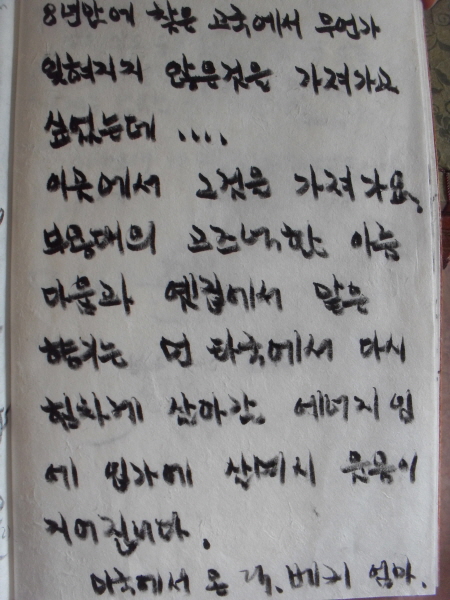 8년만에 찾은 고국에서 무언가
잊혀지지 않은것을 가져가고
싶었는데 ....
이곳에서 그것을 가져가요.
고즈넉한
마음과 옛집에서 맡은
향기는 먼 타국에서 다시
힘차게 살아갈 에너지임
에 입가에 살며시 웃음이
지어집니다.
미국에서 온 엄마.